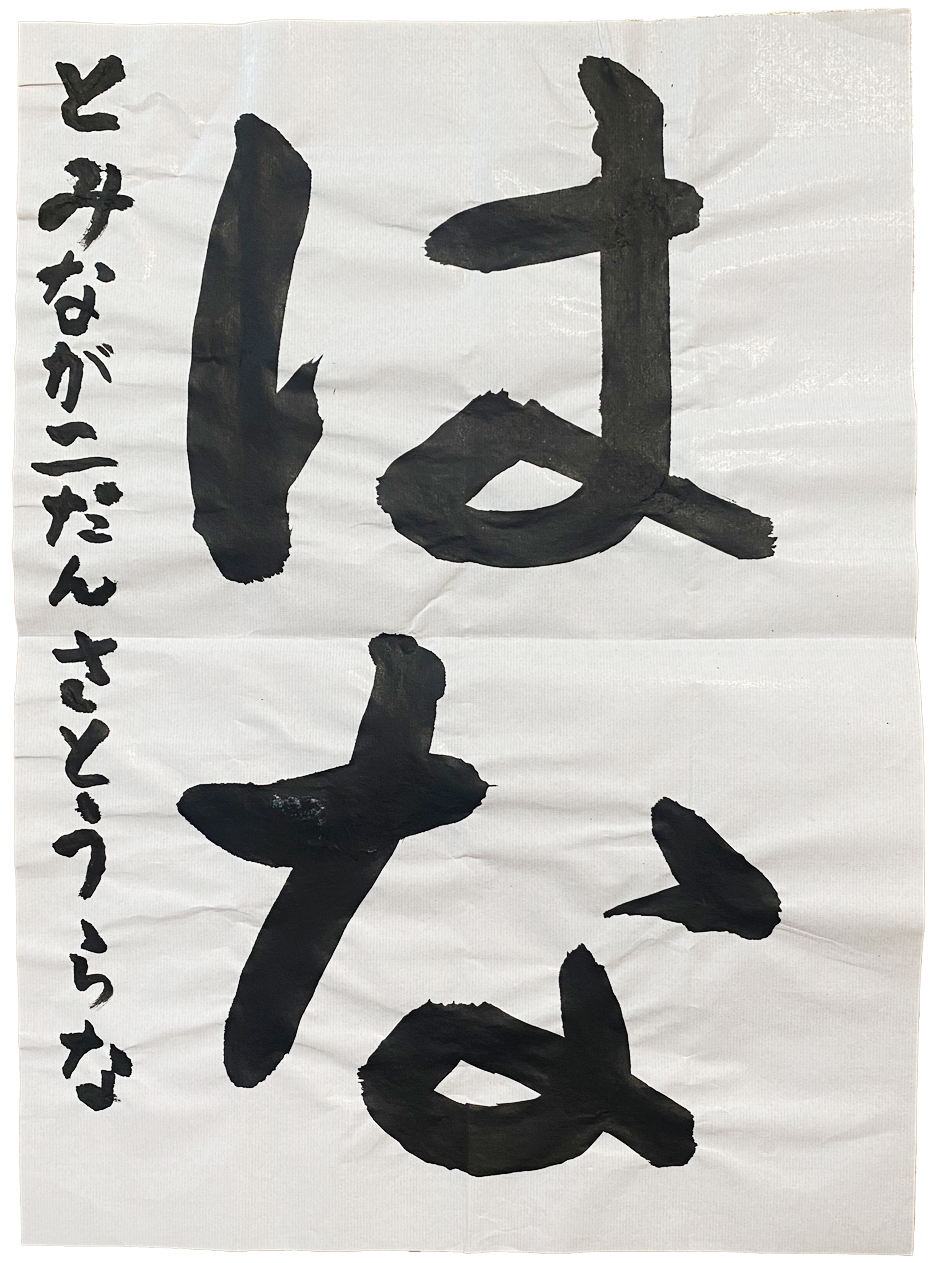 はな
とみながニだん さとうらな